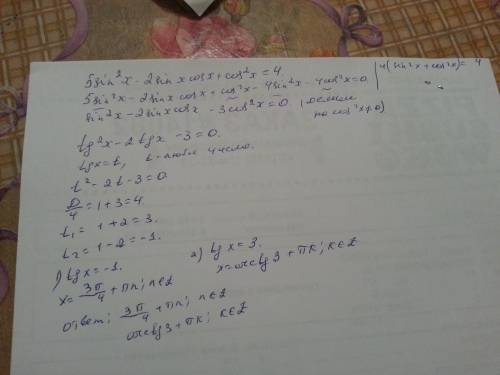 5sin²x - 2sinx cosx + cos²x = 4. | 4(sin²x + cos²x) = 4
5sin²x - 2sinx cosx + cos²x - 4sin²x - 4cos²x = 0
sin²x - 2sinx cosx - 3cos²x = 0 | делим
на cos²x ≠ 0)
tg²x - 2tgx - 3 = 0.
tgx = t, t - любое число.
t² - 2t - 3 = 0.
D/4 = 1 + 3 = 4.
t₁ = 1 + 2 = 3.
t₂ = 1 - 2 = -1.
1) tgx = -1.
x = 3π/4 + πn; n∈Z
2) tgx = 3.
x = arctg3 + πk; k∈Z
ответ: 3π/4 + πn; n∈Z
arctg3 + πk; k∈Z